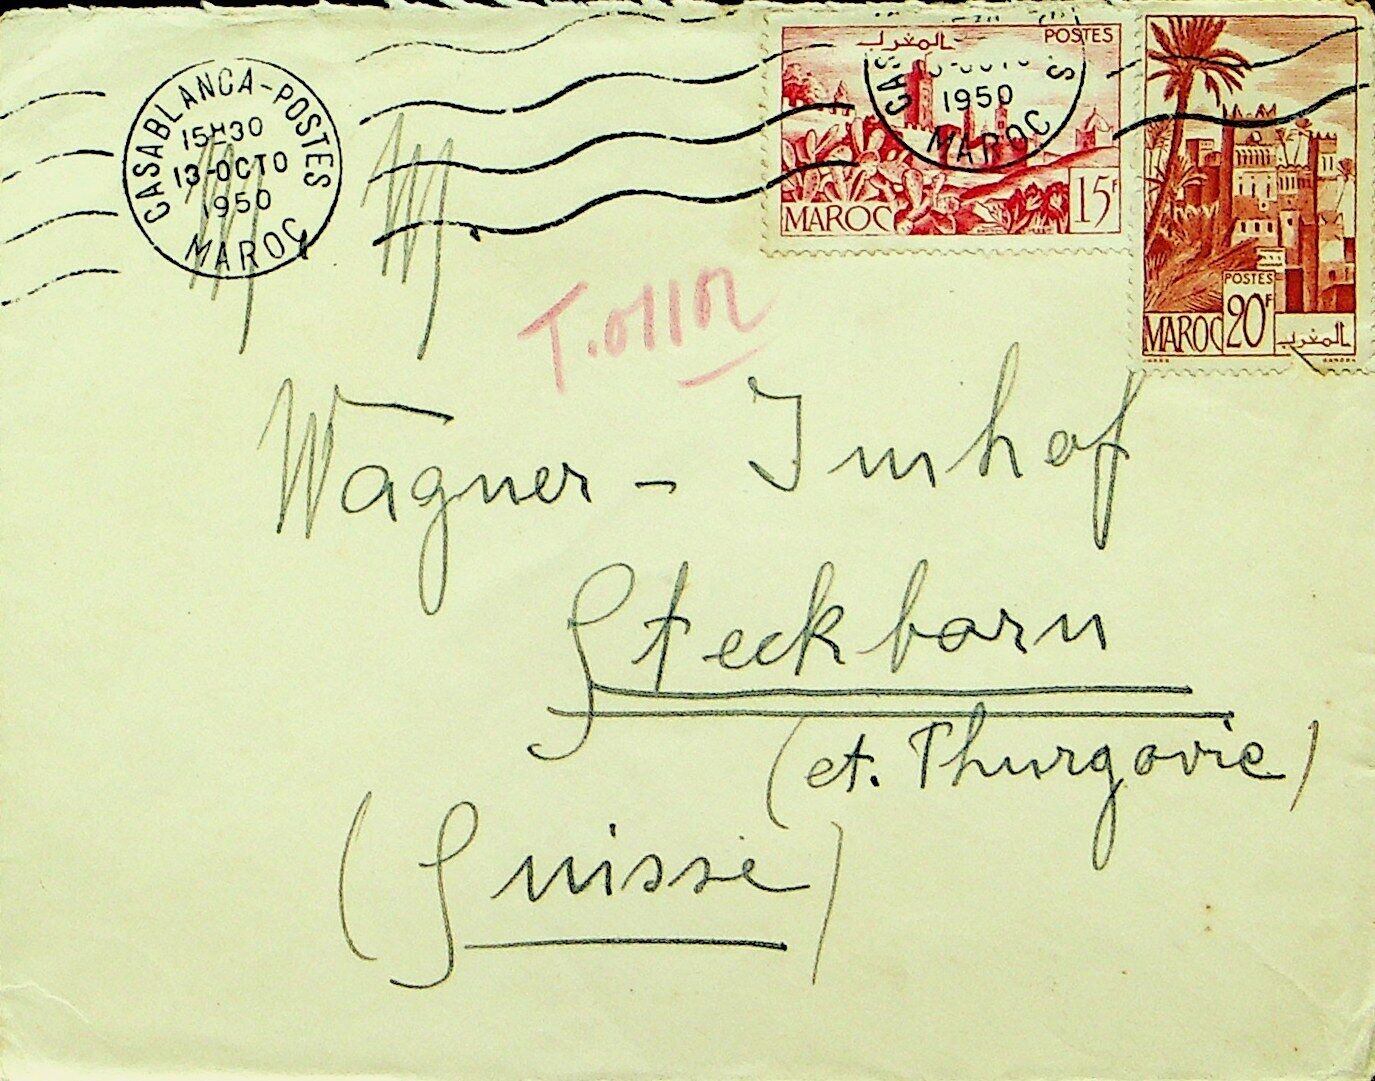 CASABLANCA-POSTES
15H30
13-OCTO
1950
MAROC
POSTES
المغرب
1950
MAROC
MAROC
15F
POSTES
MAROC 20F المغرب
Wagner - Imhof
Steckborn
(ct. Thurgovie)
(Suisse)